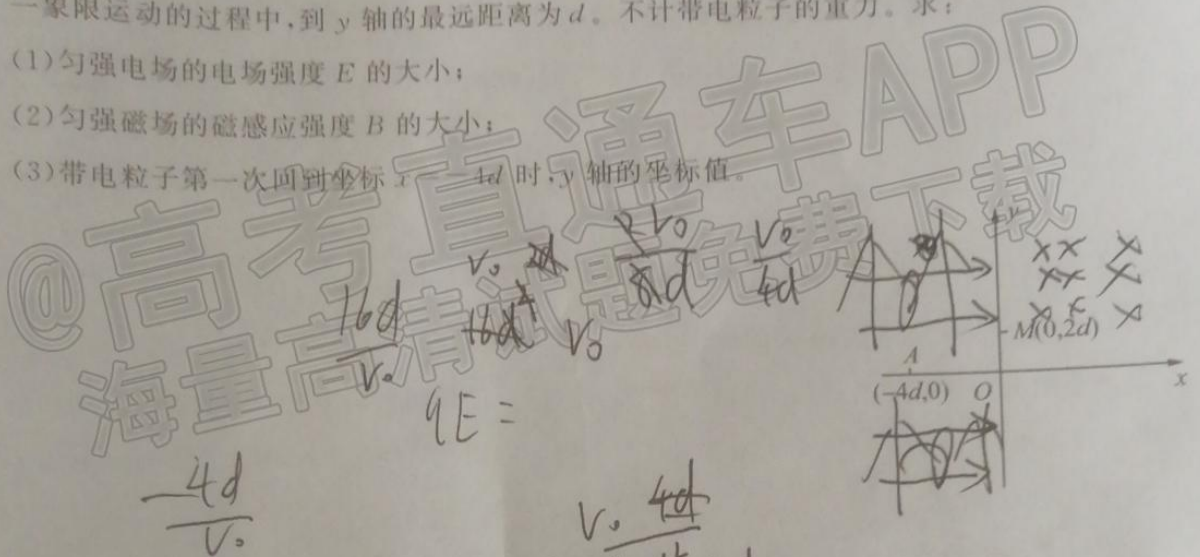 一象限运动的过程中,到 y 轴的最远距离为 d。不计带电粒子的重力。求:
(1)匀强电场的电场强度 E 的大小;
(2)匀强磁场的磁感应强度 B 的大小;
(3)带电粒子第一次回到坐标 x=-4d 时,y 轴的坐标值。
@高考直通车APP
海量高清试题免费下载
y
M(0,2d)
A
(-4d,0) O
x
16d
V₀
16d²
V₀
V₀
4d
qE =
-4d
V₀
V₀ 4d